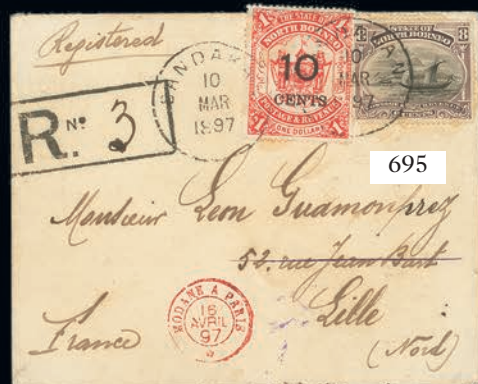 Registered
R. No. 3
SANDAKAN
10
MAR
1897
1 THE STATE OF 1
NORTH BORNEO
10
CENTS
POSTAGE & REVENUE
1 ONE DOLLAR 1
10
MAR
97
8 STATE OF 8
NORTH BORNEO
695
Monsieur Leon Guamonprez
52. rue Jean Bart
Lille
France
(Nord)
MODANE A PARIS
16
AVRIL
97